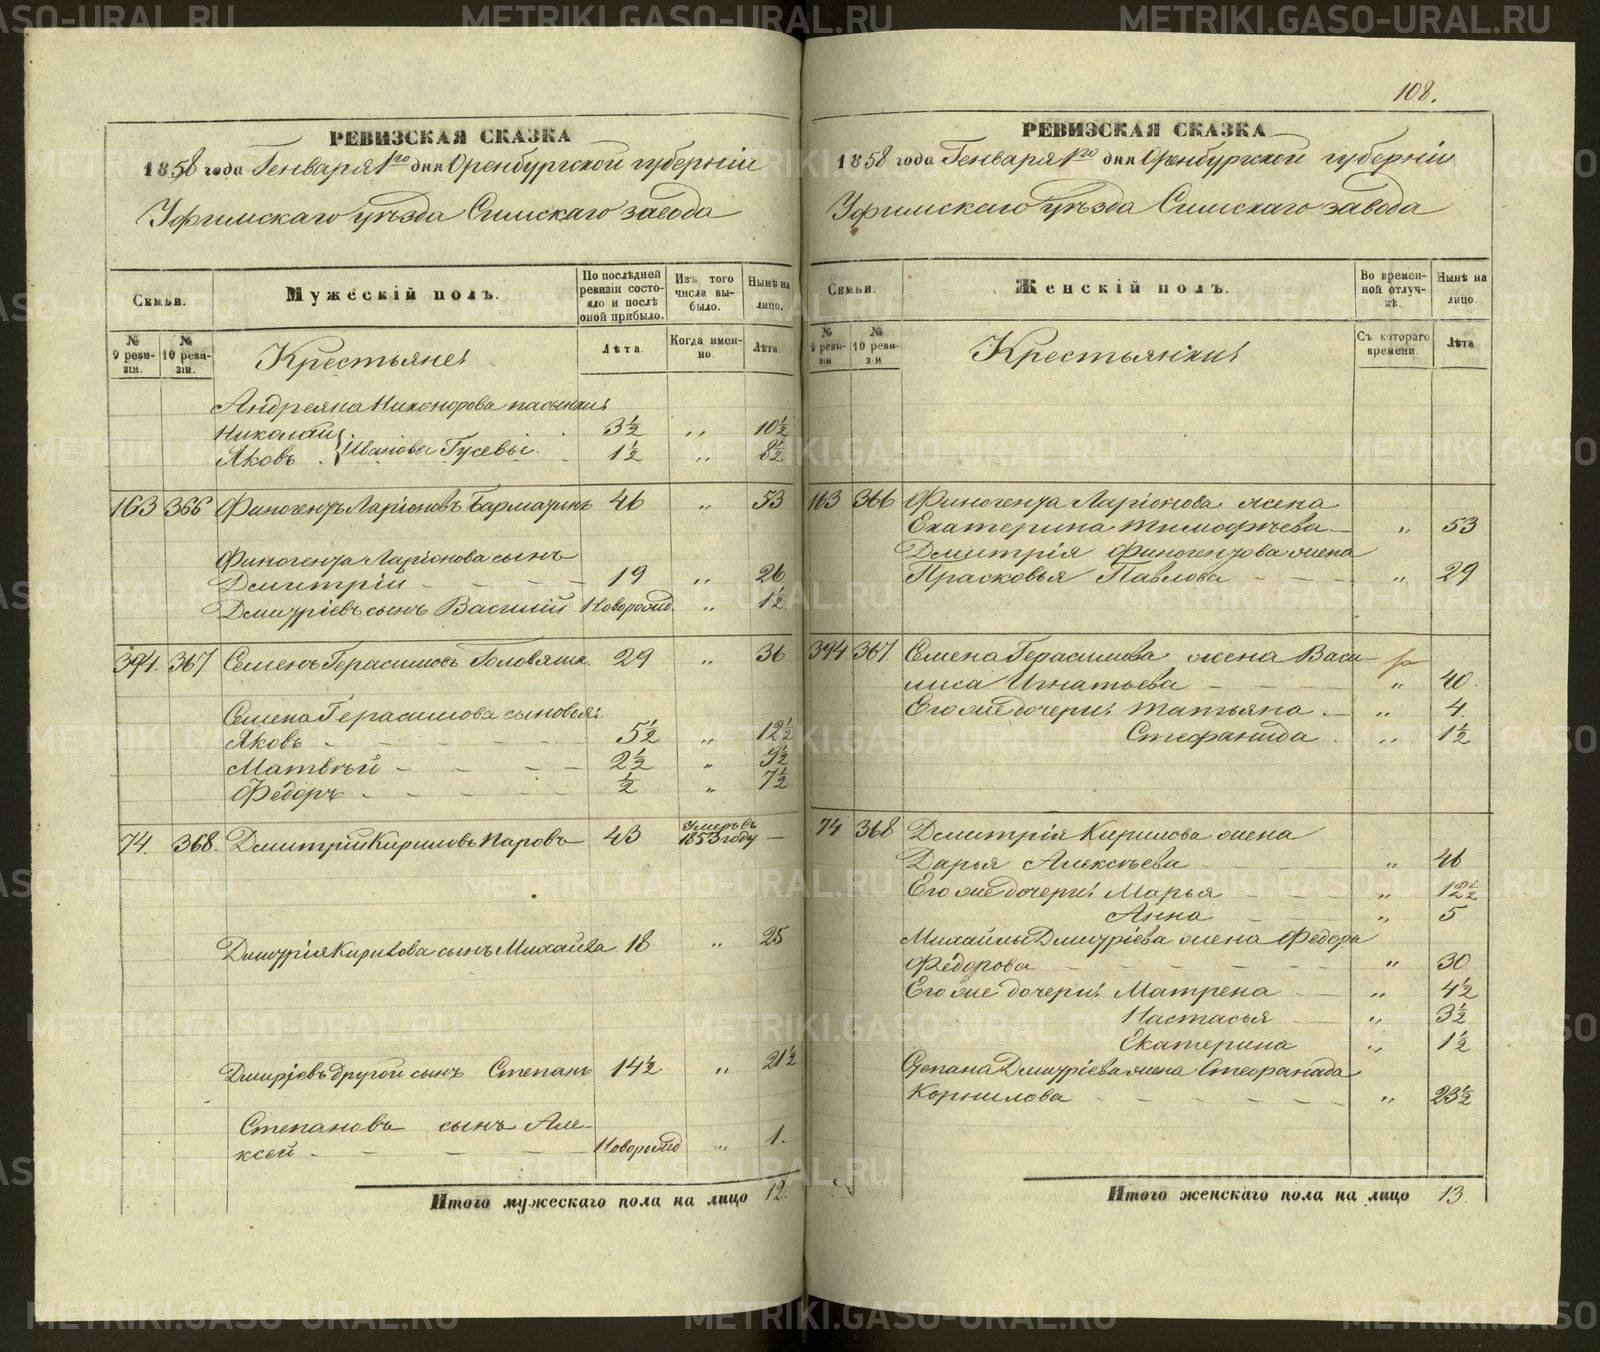 108.
РЕВИЗСКАЯ СКАЗКА
1858 года Генваря 1го дня Оренбургской губерніи
Уфимскаго уѣзда Симскаго завода
Семьи.
Мужескій полъ.
По послѣдней ревизіи состояло и послѣ оной прибыло.
Изъ того числа выбыло.
Нынѣ на лицо.
№ 9 ревизіи.
№ 10 ревизіи.
Крестьяне:
Лѣта.
Когда именно.
Лѣта.
Андреяна Никонорова пасынки:
Николай 3½ „ 10½
Яковъ Ивановы Гусевы. 1½ „ 8½
163 366 Финогентъ Ларіоновъ 46 „ 53
Финогента Ларіонова сынъ
Дмитрій 19 „ 26
Дмитріевъ сынъ Василий Новорожд. „ 1½
394. 367 Семенъ Герасимовъ 29 „ 36
Семена Герасимова сыновья:
Яковъ 5½ „ 12½
Матвѣй 2½ „ 9½
Федоръ ½ „ 7½
74. 368. Дмитрій Кириловъ Паровъ 43 Умеръ въ 1853 году —
Дмитрія Кирилова сынъ Михайла 18 „ 25
Дмитріевъ другой сынъ Степанъ 14½ „ 21½
Степановъ сынъ Але-
ксей Новорожд „ 1.
Итого мужескаго пола на лицо 12.
РЕВИЗСКАЯ СКАЗКА
1858 года Генваря 1го дня Оренбургской губерніи
Уфимскаго уѣзда Симскаго завода
Семьи.
Женскій полъ.
Во временной отлучкѣ.
Нынѣ на лицо.
№ 9 ревизіи
№ 10 ревизіи
Крестьянки:
Съ котораго времени.
Лѣта
163 366 Финогента Ларіонова жена
Екатерина Тимофѣева „ 53
Дмитрія Финогентова жена
Прасковья Павлова „ 29
394 367. Семена Герасимова жена Васи-
лиса Игнатьева „ 40.
Его же дочери: Татьяна „ 4.
Стефанида „ 1½
74 368 Дмитрія Кирилова жена
Дарья Алексѣева „ 46
Его же дочери: Марья „ 12½
Анна „ 5
Михайлы Дмитріева жена Федора
Федорова „ 30
Его же дочери: Матрена „ 4½
Настасья „ 3½
Екатерина „ 1½
Степана Дмитріева жена Стефанида
Корнилова „ 23½
Итого женскаго пола на лицо 13.
METRIKI.GASO-URAL.RU